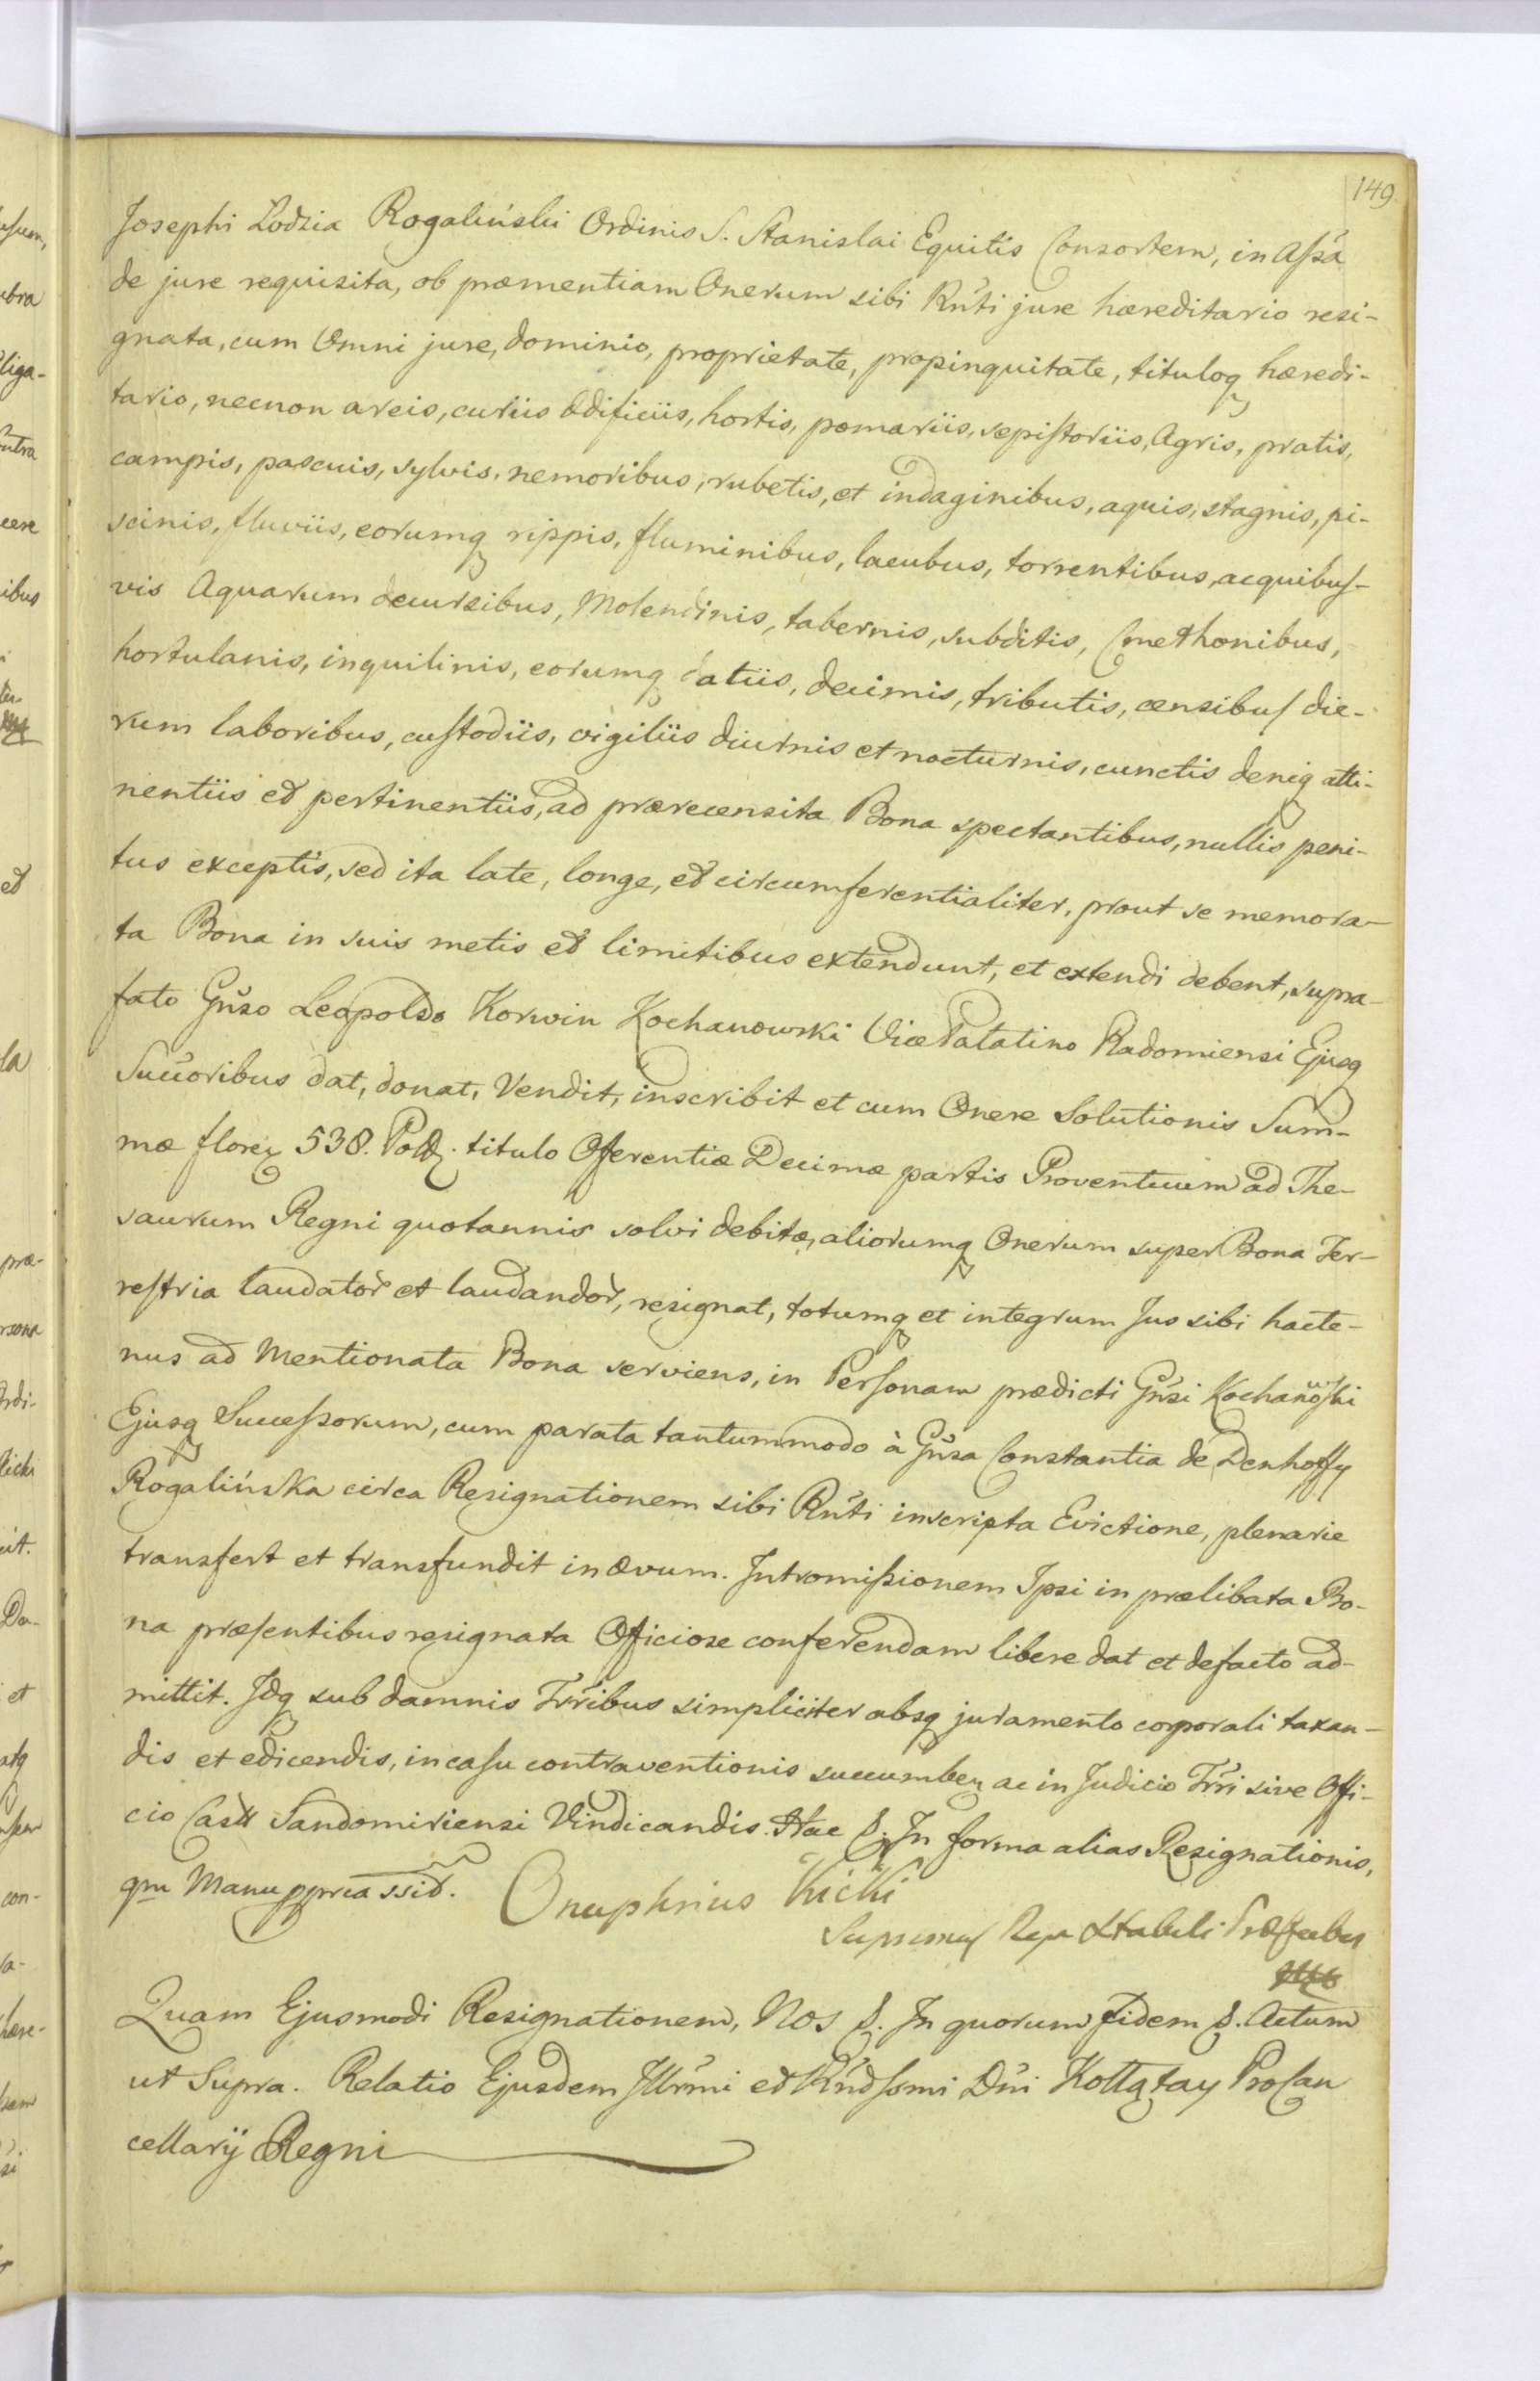 149
Josephi Lodzia Rogaliński Ordinis S. Stanislai Equitis Consortem, in Assa
de jure requisita, ob præmentiam Onerum sibi Rnti jure hæreditario resi-
gnata, cum Omni jure, dominio, proprietate, propinquitate, tituloq hæredi-
tario, necnon areis, curiis ædificiis, hortis, pomariis, sepistoriis, Agris, pratis,
campis, pascuis, sylvis, nemoribus, rubetis, et indaginibus, aquis, stagnis, pi-
scinis, fluviis, eorumq rippis, fluminibus, lacubus, torrentibus, acquibus-
vis Aquarum decursibus, Molendinis, tabernis, subditis, Cmethonibus,
hortulanis, inquilinis, eorumq datiis, decimis, tributis, censibus die-
rum laboribus, custodiis, vigiliis diurnis et nocturnis, cunctis deniq atti-
nentiis et pertinentiis, ad prærecensita Bona spectantibus, nullis peni-
tus exceptis, sed ita late, longe, et circumferentialiter, prout se memora-
ta Bona in suis metis et limitibus extendunt, et extendi debent, supra-
fato Gnso Leopoldo Korwin Kochanowski Vice Palatino Radomiensi Ejusq
Succoribus dat, donat, Vendit, inscribit et cum Onere Solutionis Sum-
mæ flore 538. Pol. titulo Oferentiæ Decimæ partis Proventuum ad The-
saurum Regni quotannis solvi debitæ, aliorumq Onerum super Bona Ter-
restria laudator et laudandor, resignat, totumq et integrum Jus sibi hacte-
nus ad Mentionata Bona serviens, in Personam prædicti Gnsi Kochanowski
Ejusq Successorum, cum parata tantummodo à Gnsa Constantia de Denhoffy
Rogalińska circa Resignationem sibi Rnti inscripta Evictione, plenarie
transfert et transfundit in ævum. Intromissionem Ipsi in prælibata Bo-
na præsentibus resignata Officiose conferendam libere dat et defacto ad-
mittit. Idq sub damnis Trribus simpliciter absq juramento corporali taxan-
dis et edicendis, in casu contraventionis succumben ac in Judicio Trri sive Offi-
cio Castr Sandomiriensi Vindicandis. Hac &. In forma alias Resignationis,
qm Manu ppria ssit. Onuphrius Kicki
Supremus Reg Stabuli Præfectus
Quam Ejusmodi Resignationem, Nos &. In quorum fidem &. Actum
ut Supra. Relatio Ejusdem Illrmi et Rndssmi Dni Kołłątay ProCan
cellarij Regni